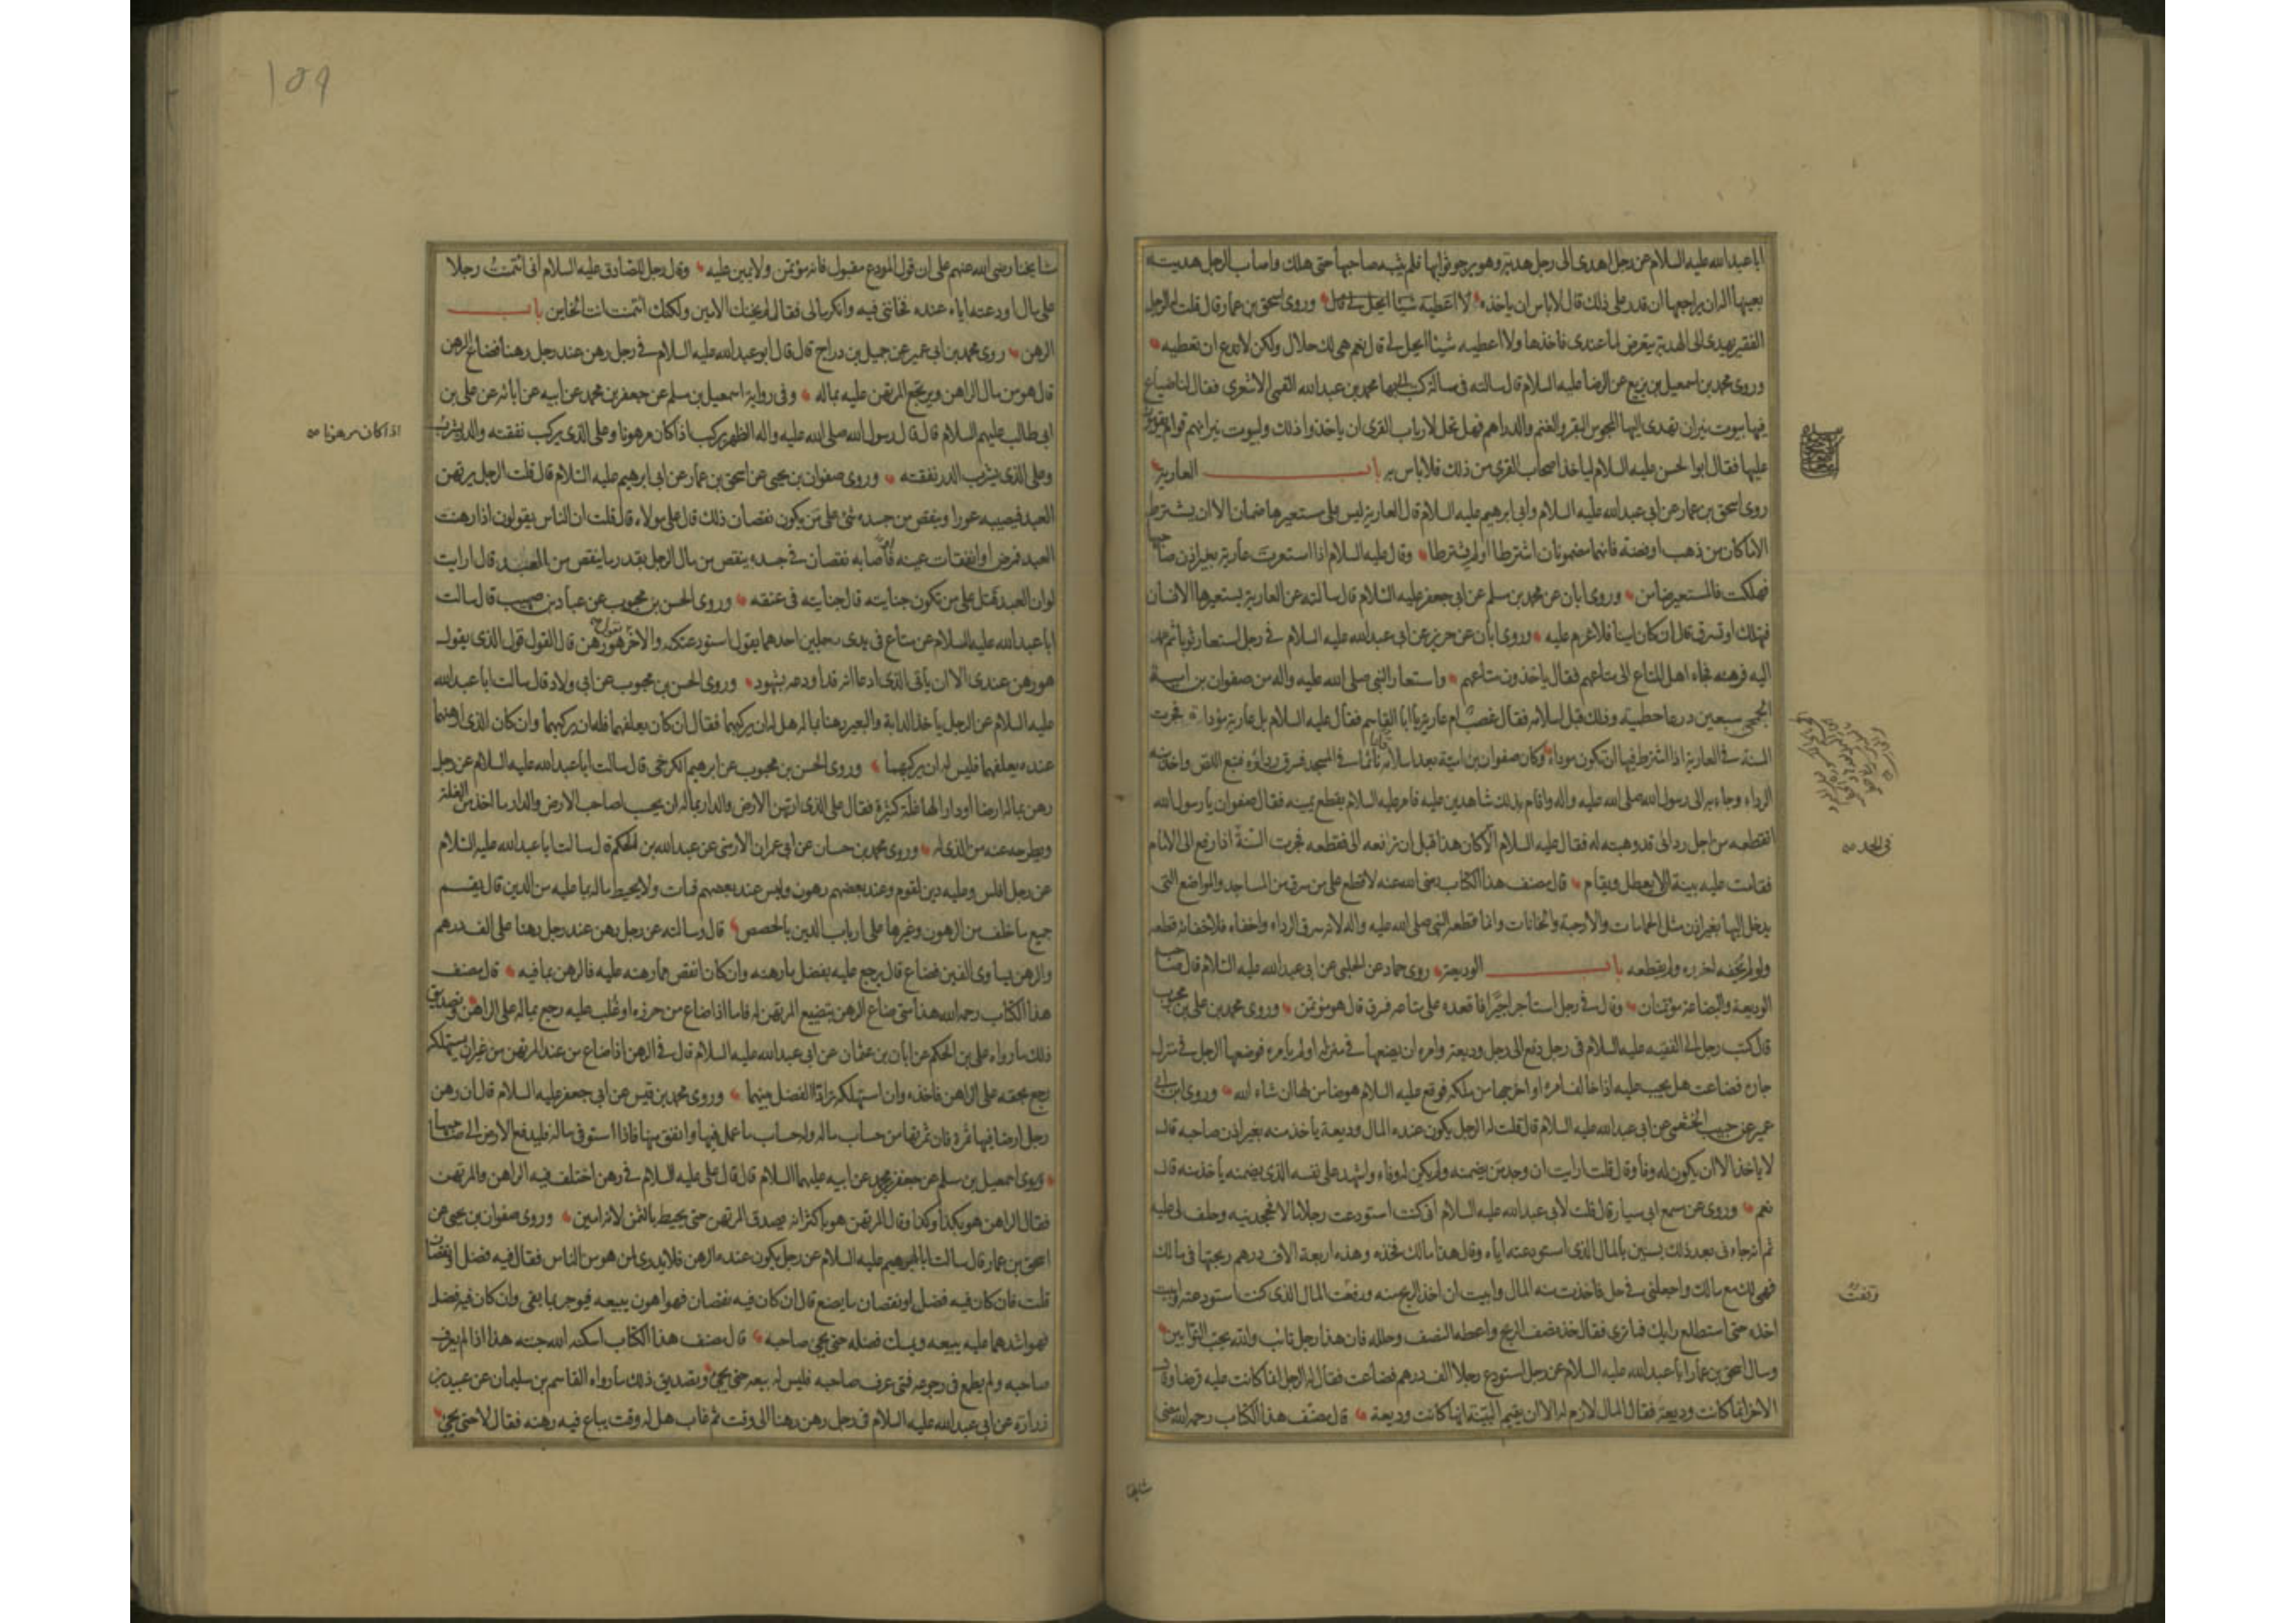 ابا عبدالله عليه السلام عن رجل اهدى الى رجل هدية وهو يرجو ثوابها فلم يثبه صاحبها حتى هلك واصاب الرجل هديته
بعينها اله ان يراجعها ان قدر على ذلك قال لا باس ان ياخذه وروى اسحق بن عمار قال قلت له الرجل
الفقير يهدى الى الهدية يتعرض لما عندى فاخذها ولا اعطيه شيئا ايحل لى قال نعم هى لك حلال ولكن لا تدع ان تعطيه
وروى محمد بن اسمعيل بن بزيع عن الرضا عليه السلام قال سالته فى رسالة كتب اليها محمد بن عبدالله القمى الاشعرى فقال لنا ضياع
فيها بيوت نيران تهدى اليها المجوس البقر والغنم والدراهم فهل تحل لارباب القرى ان ياخذوا ذلك ولبيوت نيرانهم قوام يقومون
عليها فقال ابوا لحسن عليه السلام لياخذ اصحاب القرى من ذلك فلا باس به باب العارية
روى اسحق بن عمار عن ابى عبدالله عليه السلام وابى ابرهيم عليه السلام قال العارية ليس على مستعيرها ضمان الا ان يشترط
الا ما كان من ذهب او فضة فانهما مضمونان اشترطا او لم يشترطا وقال عليه السلام اذا استعرت عارية بغير اذن صاحبها
فهلكت فالمستعير ضامن وروى ابان عن محمد بن مسلم عن ابى جعفر عليه السلام قال سالته عن العارية يستعيرها الانسان
فتهلك او تسرق قال ان كان امينا فلا غرم عليه وروى ابان عن حريز عن ابى عبدالله عليه السلام فى رجل استعار ثوبا ثم عمد
اليه فرهنه فجاء اهل المتاع الى متاعهم فقال ياخذون متاعهم واستعار النبى صلى الله عليه واله من صفوان بن امية
الجمحى سبعين درعا حطمية وذلك قبل اسلامه فقال غصب ام عارية يا ابا القاسم فقال عليه السلام بل عارية مؤداة فجرت
السنة فى العارية اذا اشترط فيها ان تكون موداة وكان صفوان بن امية بعد اسلامه نائما فى المسجد فسرق رداؤه فتبع اللص واخذ منه
الرداء وجاء به الى رسول الله صلى الله عليه واله واقام بذلك شاهدين عليه فامر عليه السلام بقطع يمينه فقال صفوان يا رسول الله
اتقطعه من اجل ردائى قد وهبته له فقال عليه السلام الا كان هذا قبل ان ترفعه الى فقطعه فجرت السنة اذا رفع الى الامام
فقامت عليه بينة الا يعطل ويقام قال مصنف هذا الكتاب رضى الله عنه لا قطع على من سرق من المساجد والمواضع التى
يدخل اليها بغير اذن مثل الحمامات والارحية والخانات وانما قطعه النبى صلى الله عليه واله لانه سرق الرداء واخفاه فلاخفائه قطعه
ولو لم يخفه لعزره ولم يقطعه باب الوديعة روى حماد عن الحلبى عن ابى عبدالله عليه السلام قال صاحب
الوديعة والبضاعة مؤتمنان وقال فى رجل استاجر اجيرا فاقعده على متاعه فسرق قال هو مؤتمن وروى محمد بن على بن محبوب
قال كتب رجل الى الفقيه عليه السلام فى رجل دفع الى رجل وديعة وامره ان يضعها فى منزله او لم يامره فوضعها الرجل فى منزل
جاره فضاعت هل يجب عليه اذا خالف امره او اخرجها من ملكه فوقع عليه السلام هو ضامن لها ان شاء الله وروى ابن ابى
عمير عن حبيب الخثعمى عن ابى عبدالله عليه السلام قال قلت له الرجل يكون عنده المال وديعة ياخذ منه بغير اذن صاحبه قال
لا ياخذ الا ان يكون له وفا وقال قلت ارايت ان وجد من يضمنه ولم يكن له وفاء واشهد على نفسه الذى يضمنه ياخذ منه قال
نعم وروى عن مسمع ابى سيار قال قلت لابى عبدالله عليه السلام انى كنت استودعت رجلا مالا فجحدنيه وحلف لى عليه
ثم انه جاء نى بعد ذلك بسنين بالمال الذى استودعته اياه وقال هذا مالك فخذه وهذه اربعة الاف درهم ربحتها فى مالك
فهى لك مع مالك واجعلنى فى حل فاخذت منه المال وابيت ان اخذ الربح منه ورفعت المال الذى كنت استودعته وابيت
اخذه حتى استطلع رايك فما ترى فقال خذ نصف الربح واعطه النصف وحلله فان هذا رجل تائب والله يحب التوابين
وسال اسحق بن عمار ابا عبدالله عليه السلام عن رجل استودع رجلا الف درهم فضاعت فقال له الرجل انما كانت عليه قرضا وقال
الاخر انما كانت وديعة فقال المال لازم له الا ان يقيم البينة انها كانت وديعة قال مصنف هذا الكتاب رحمه الله مضى
فى الحد
مشايخنا
159
مشايخنا رضى الله عنهم على ان قول المودع مقبول فانه مؤتمن ولا يمين عليه وقال رجل للصادق عليه السلام انى ائتمنت رجلا
على مال اودعته اياه عنده فخاننى فيه وانكر مالى فقال لم يخنك الامين ولكنك ائتمنت انت الخاين باب
الرهن روى محمد بن ابى عمير عن جميل بن دراج قال قال ابو عبدالله عليه السلام فى رجل رهن عند رجل رهنا فضاع الرهن
قال هو من مال الراهن ويرتجع المرتهن عليه بماله وفى رواية اسمعيل بن مسلم عن جعفر بن محمد عن ابيه عن ابائه عن على بن
ابى طالب عليهم السلام قال قال رسول الله صلى الله عليه واله الظهر يركب اذا كان مرهونا وعلى الذى يركب نفقته والدر يشرب
اذا كان مرهونا
وعلى الذى يشرب الدر نفقته وروى صفوان بن يحيى عن اسحق بن عمار عن ابى ابرهيم عليه السلام قال قلت الرجل يرتهن
العبد فيصيبه عورا وينقص من جسده شئ على من يكون نقصان ذلك قال على مولاه قال قلت ان الناس يقولون اذا رهنت
العبد فمرض او انفقات عينه فاصابه نقصان فى جسده ينقص من مال الرجل بقدر ما ينقص من العبد قال ارايت
لو ان العبد قتل على من تكون جنايته قال جنايته فى عنقه وروى الحسن بن محبوب عن عباد بن صهيب قال سالت
ابا عبدالله عليه السلام عن متاع فى يدى رجلين احدهما يقول استودعتكه والاخر يقول هو رهن قال القول قول الذى يقول
هو رهن عندى الا ان ياتى الذى ادعا انه قد اودعه بشهود وروى الحسن بن محبوب عن ابى ولاد قال سالت ابا عبدالله
عليه السلام عن الرجل ياخذ الدابة والبعير رهنا بماله هل له ان يركبهما فقال ان كان يعلفهما فله ان يركبهما وان كان الذى ارهنهما
عنده يعلفهما فليس له ان يركبهما وروى الحسن بن محبوب عن ابرهيم الكرخى قال سالت ابا عبدالله عليه السلام عن رجل
رهن بماله ارضا او دارا لها غلة كثيرة فقال على الذى ارتهن الارض والدار بماله ان يحسب لصاحب الارض والدار ما اخذ من الغلة
ويطرحه عنه من الذى له وروى محمد بن حسان عن ابى عمران الارمنى عن عبدالله بن الحكم قال سالت ابا عبدالله عليه السلام
عن رجل افلس وعليه دين لقوم وعند بعضهم رهون وليس عند بعضهم فمات ولا يحيط ماله بما عليه من الدين قال يقسم
جميع ما خلف من الرهون وغيرها على ارباب الدين بالحصص قال وسالته عن رجل رهن عند رجل رهنا على الف درهم
والرهن يساوى الفين فضاع قال يرجع عليه بفضل ما رهنه وان كان انقص مما رهنه عليه فالرهن بما فيه قال مصنف
هذا الكتاب رحمه الله هذا متى ضاع الرهن بتضييع المرتهن له فاما اذا ضاع من حرزه او غلب عليه رجع بماله على الراهن وتصديق
ذلك ما رواه على بن الحكم عن ابان بن عثمان عن ابى عبدالله عليه السلام قال فى الرهن اذا ضاع من عند المرتهن من غير ان يستهلكه
رجع بحقه على الراهن فاخذه وان استهلكه ترادا الفضل بينهما وروى محمد بن قيس عن ابى جعفر عليه السلام قال ان رهن
رجل ارضا فيها ثمرة فان ثمرتها من حساب ماله وله حساب ما عمل فيها وانفق منها فاذا استوفى ماله فليدفع الارض الى صاحبها
وروى اسمعيل بن مسلم عن جعفر بن محمد عن ابيه عليهما السلام قال قال على عليه السلام فى رهن اختلف فيه الراهن والمرتهن
فقال الراهن هو بكذا وكذا وقال المرتهن هو باكثر انه يصدق المرتهن حتى يحيط بالثمن لانه امين وروى صفوان بن يحيى عن
اسحق بن عمار قال سالت ابا ابرهيم عليه السلام عن رجل يكون عنده الرهن فلا يدرى لمن هو من الناس فقال فيه فضل او نقصان
قلت فان كان فيه فضل او نقصان ما يصنع قال ان كان فيه نقصان فهو اهون يبيعه فيوجر بما بقى وان كان فيه فضل
فهو اشدهما عليه يبيعه ويمسك فضله حتى يجئ صاحبه قال مصنف هذا الكتاب اسكنه الله جنته هذا اذا لم يعرف
صاحبه ولم يطمع فى رجوعه فمتى عرف صاحبه فليس له بيعه حتى يجئ وتصديق ذلك ما رواه القاسم بن سليمان عن عبيد بن
زرارة عن ابى عبدالله عليه السلام فى رجل رهن رهنا الى وقت ثم غاب هل له وقت يباع فيه رهنه فقال لا حتى يجئ